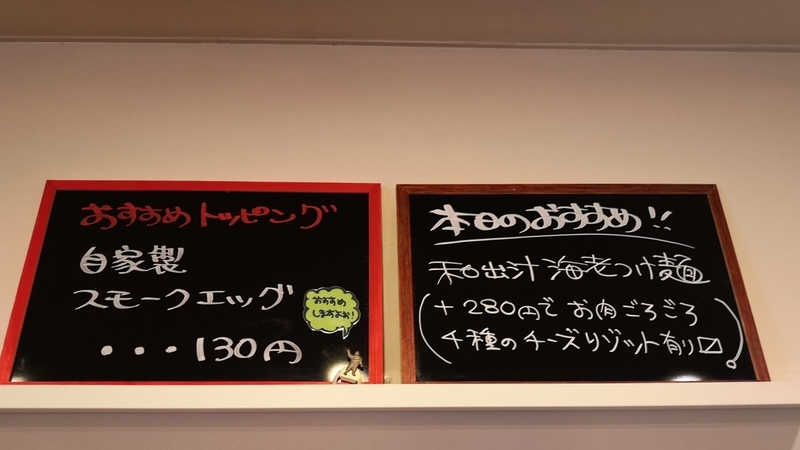 おすすめトッピング
自家製
スモークエッグ
・・・130円
おすすめ
しますよぉ!
本日のおすすめ!!
和出汁 海老つけ麺
(+280円で お肉ごろごろ
4種のチーズリゾット有り〼)